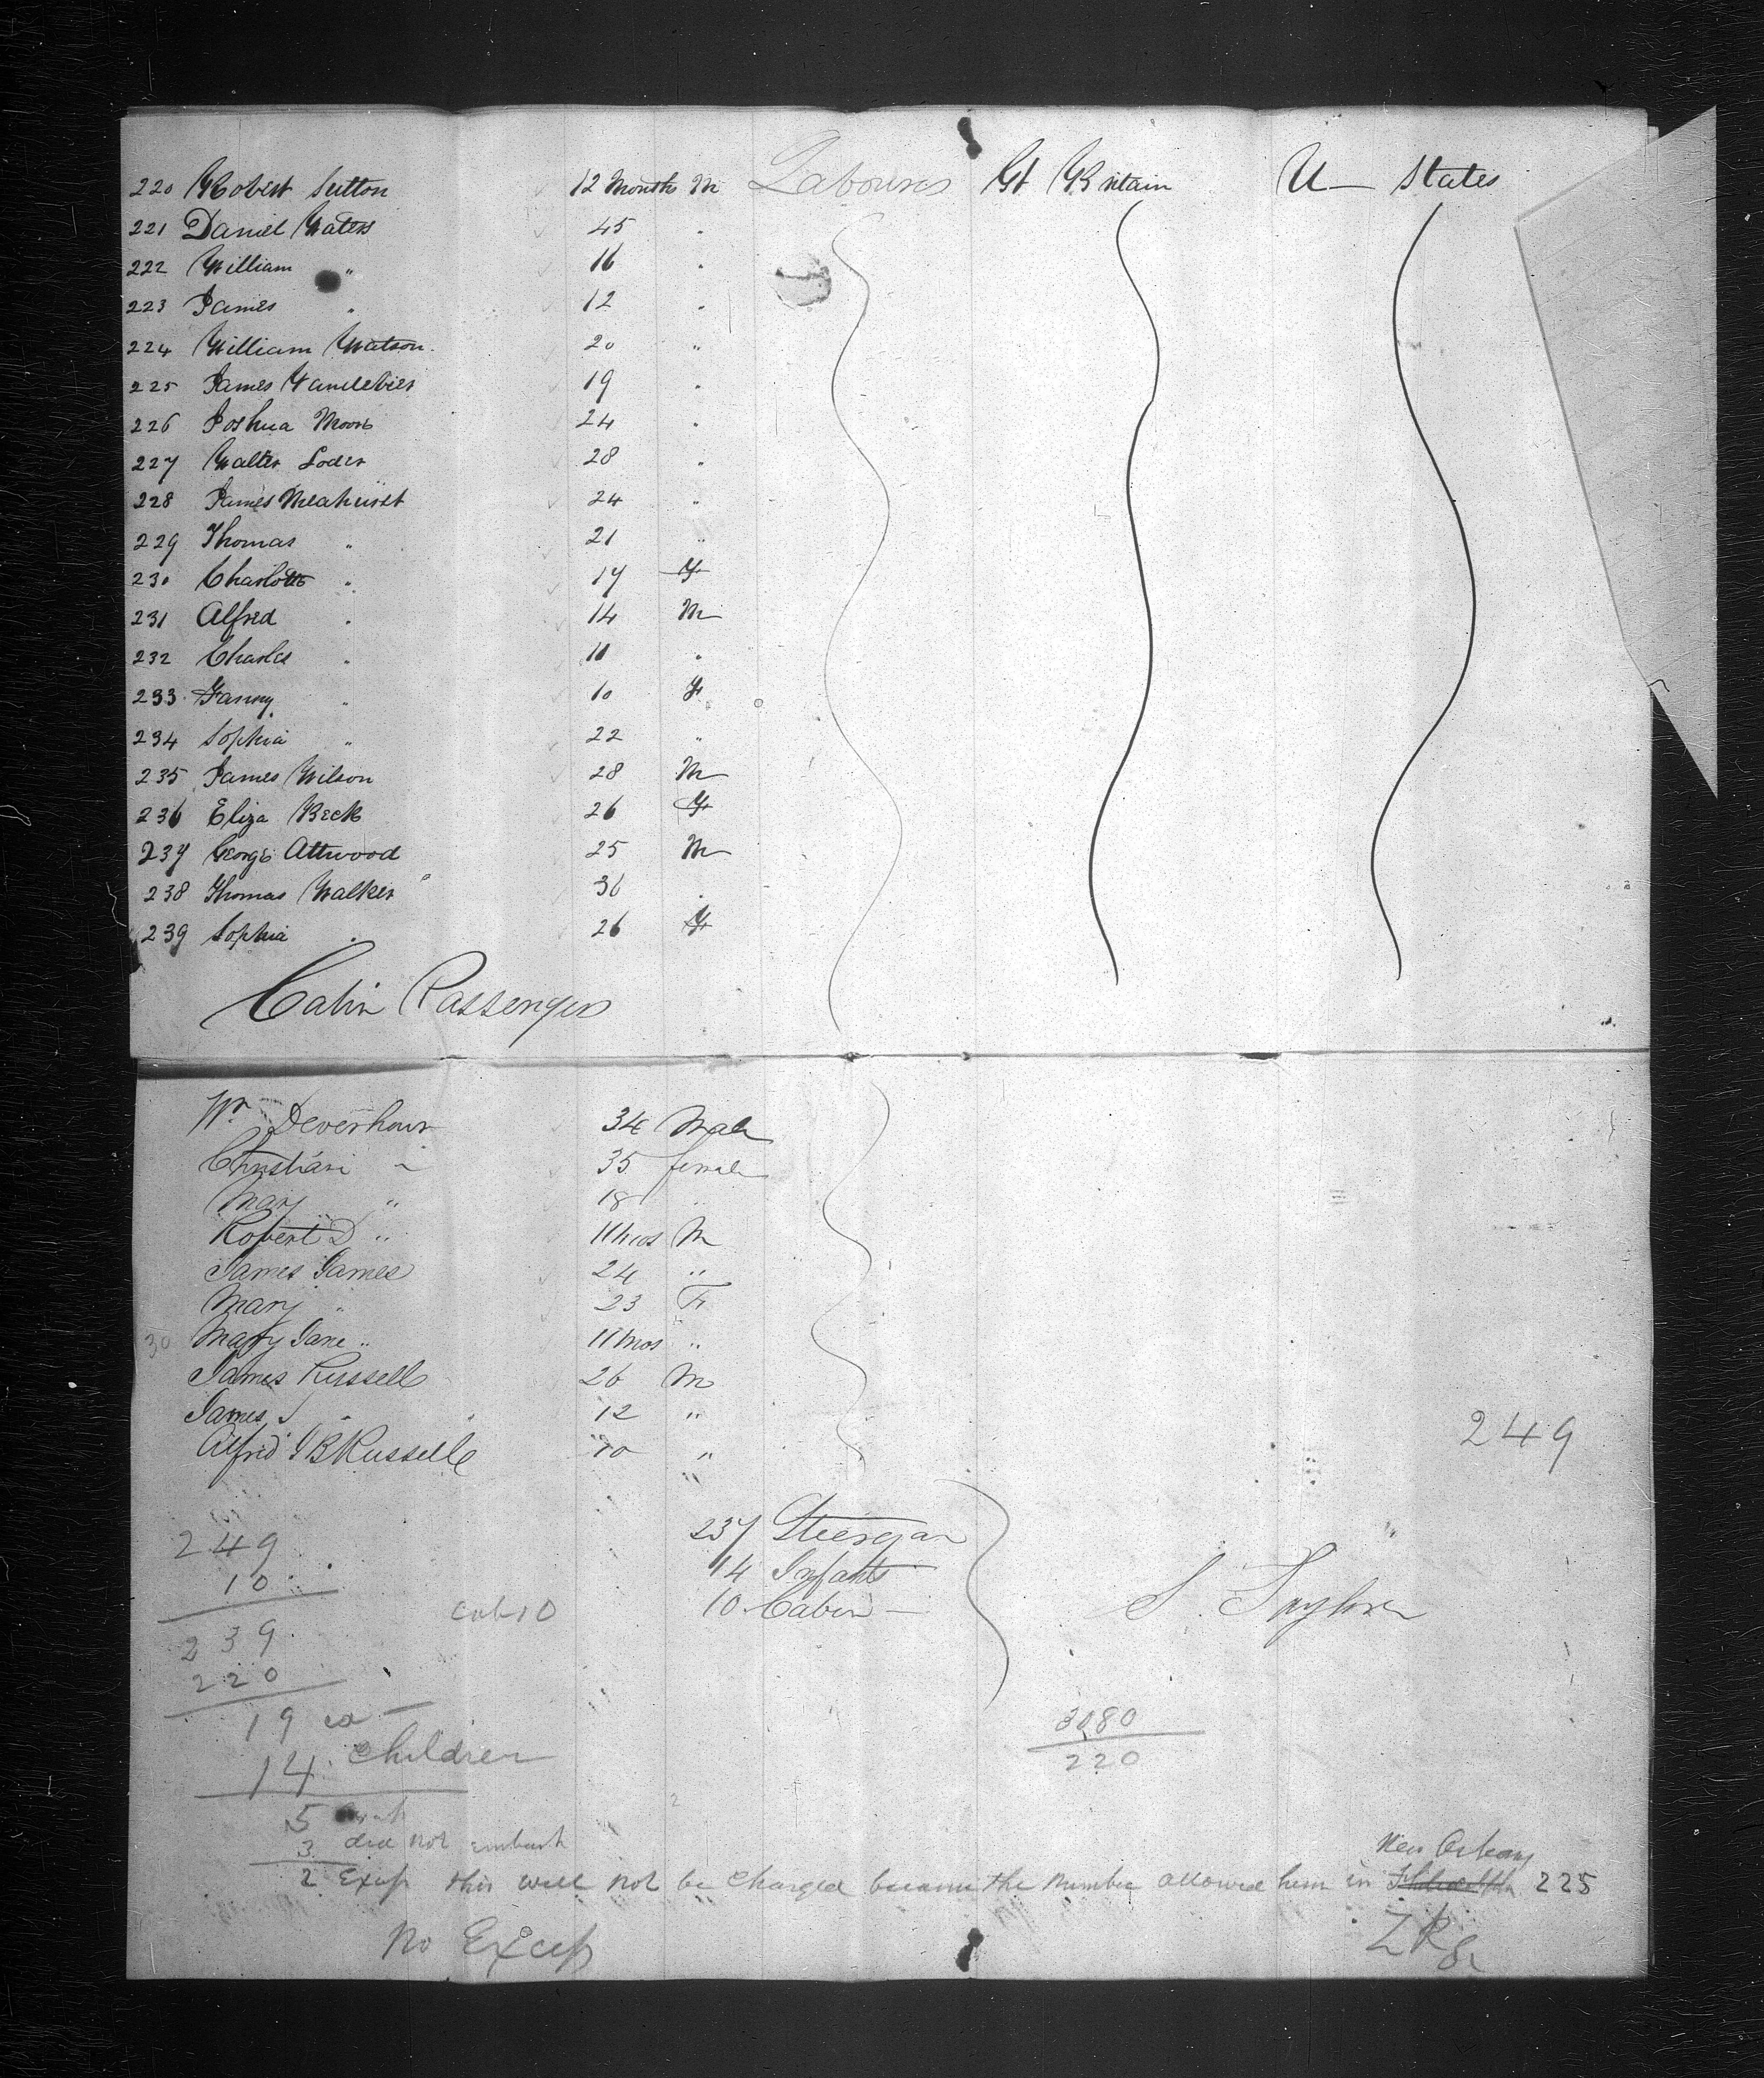 220 Robert Sutton 12 Months M Labourers Gt Britain U— States
221 Daniel Waters 45 "
222 William " 16 "
223 James " 12 "
224 William Watson 20 "
225 James 19 "
226 Joshua Moore 24 "
227 Walter Loder 28 "
228 James Meahurst 24 "
229 Thomas " 21 "
230 Charlotte " 17 F
231 Alfred " 14 M
232 Charles " 11 "
233 Fanny " 10 F
234 Sophia " 22 "
235 James Wilson 28 M
236 Eliza Beck 26 F
237 George Attwood 25 M
238 Thomas Walker 36 "
239 Sophia " 26 F
Cabin Passengers
Wm 34 Male
Christian " 35 female
Mary " 18 "
Robert D " 11 mos M
James James 24 "
Mary " 23 F
30 Mary Jane " 11 mos "
James Russell 26 M
James J " 12 "
Alfred J B Russell 10 "
249
237 Steerage
14 Infants
10 Cabin —
S. Taylor
249
10
239
220
19 ex
14 Children
5
3 did not embark
2 Excess this will not be charged because the number allowed him in New Orleans 225
cab 10
3080
220
No Excess